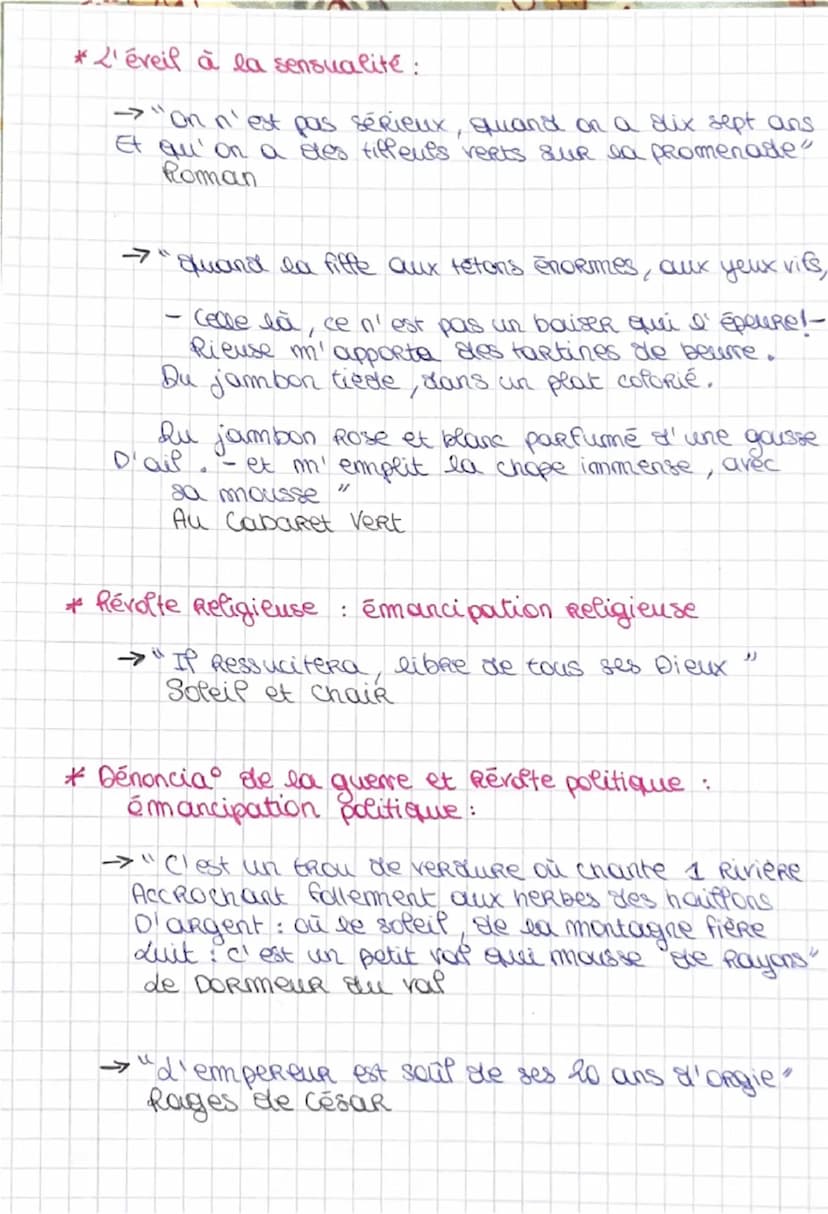 * L'éveil à la sensualité :
→ "On n'est pas sérieux, quand on a dix sept ans
Et qu'on a des tilleuls verts sur la promenade"
Roman
→ "Quand la fille aux tétons énormes, aux yeux vifs,
- Celle là, ce n'est pas un baiser qui l'épeure! -
Rieuse m'apporta des tartines de beurre.
Du jambon tiède, dans un plat colorié.
Du jambon rose et blanc parfumé d'une gousse
D'ail. - et m'emplit la chope immense, avec
sa mousse"
Au Cabaret Vert
* Révolte religieuse : émancipation religieuse
→ "Il ressucitera, libre de tous ses Dieux"
Soleil et chair
* Dénoncia° de la guerre et Révolte politique :
émancipation politique :
→ "C'est un trou de verdure où chante 1 rivière
Accrochant follement aux herbes des haillons
D'argent : où le soleil, de la montagne fière
Luit : c'est un petit val qui mousse de rayons"
Le Dormeur du val
→ "L'empereur est soûl de ses 20 ans d'orgie"
Rages de César